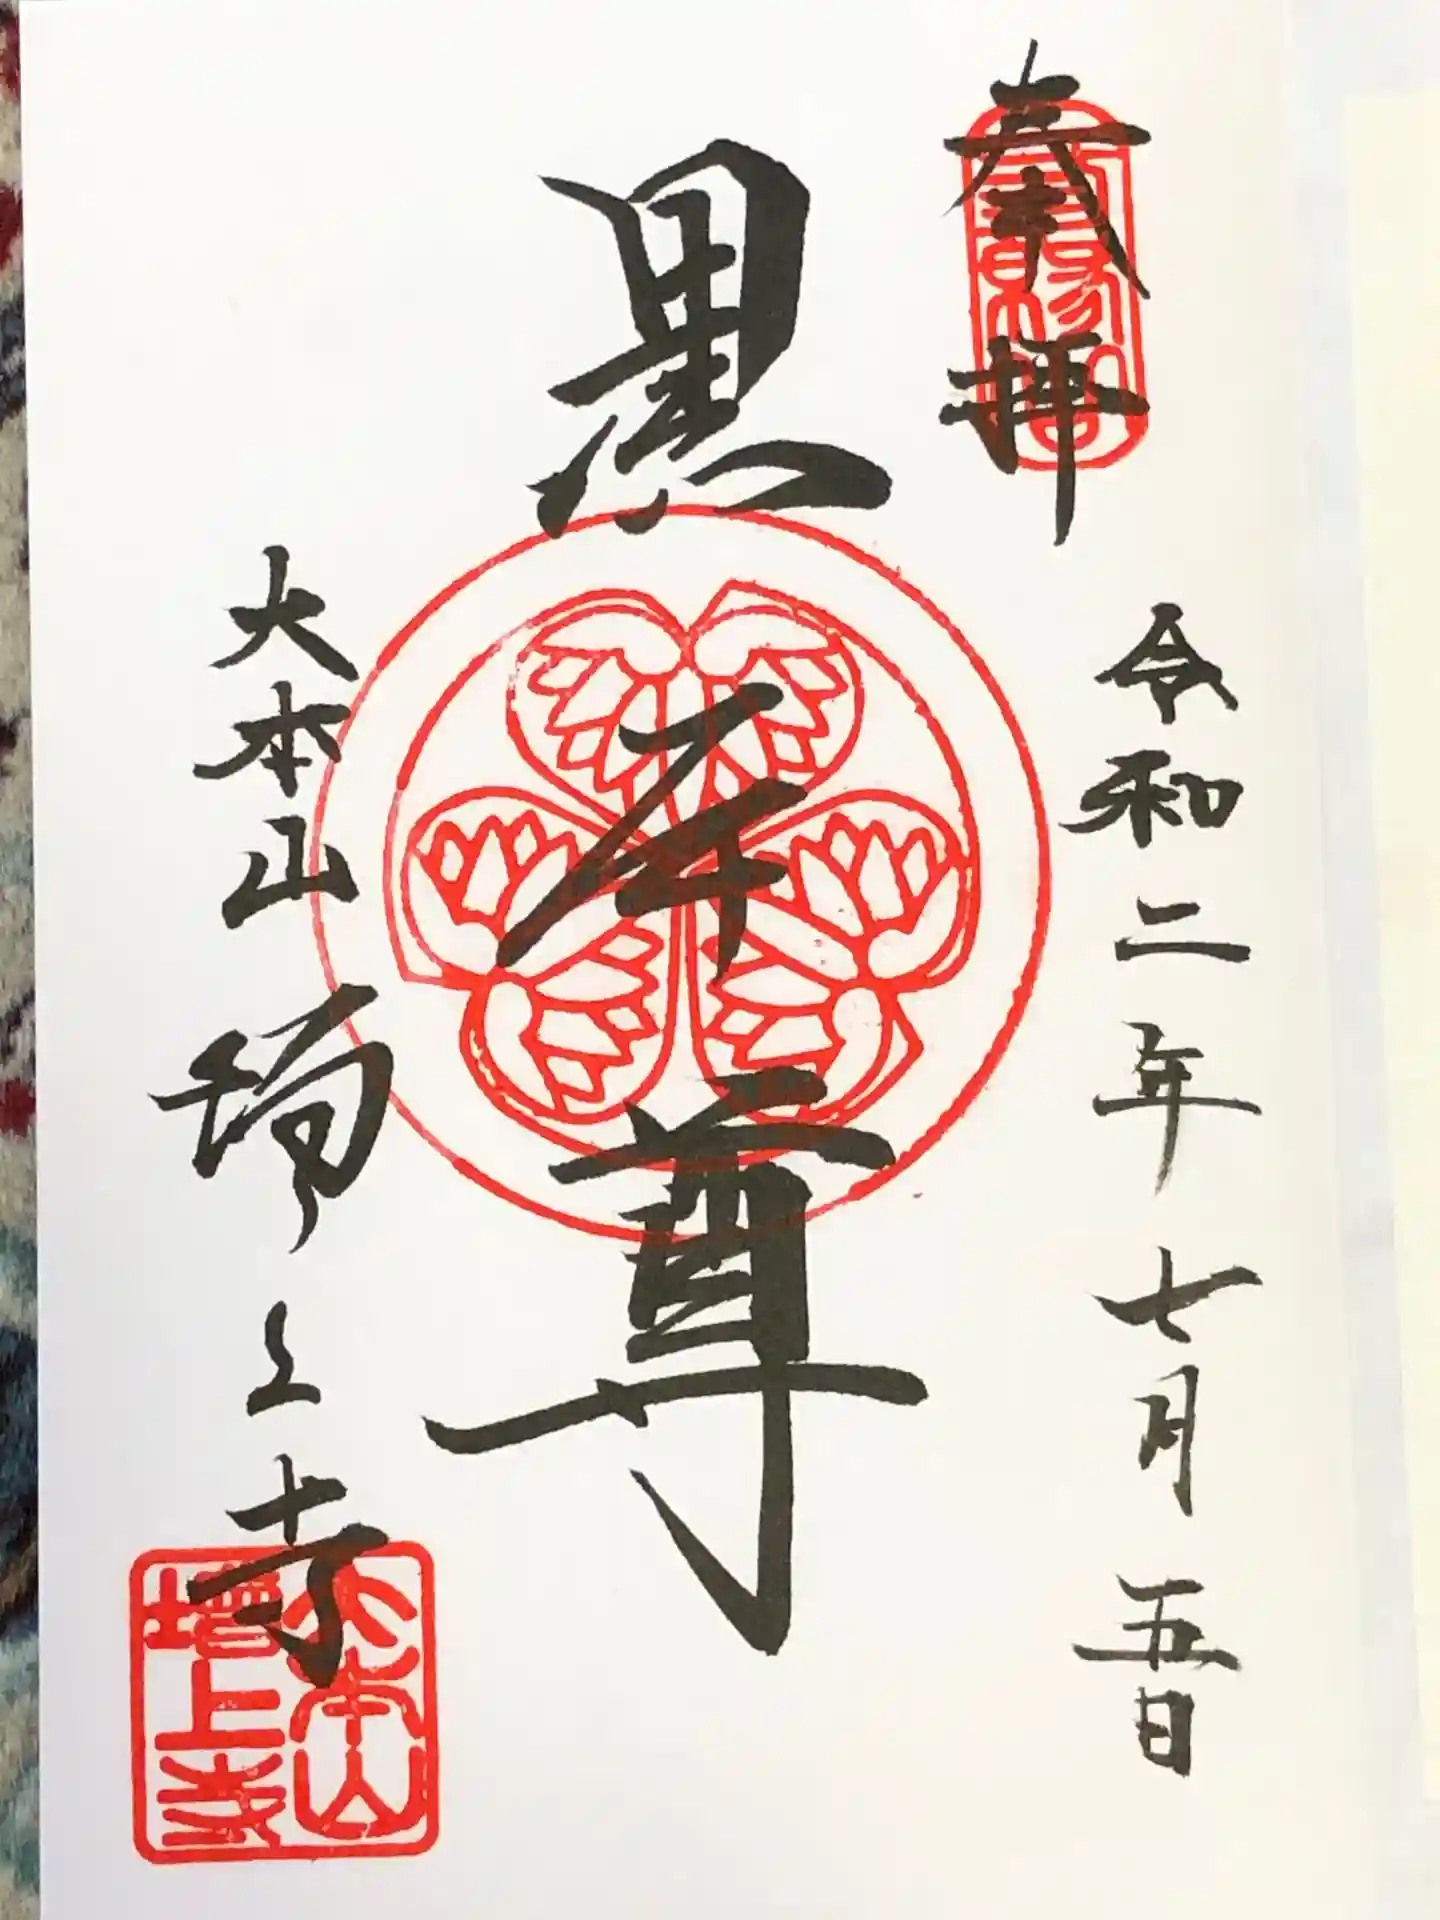 奉拝
令和二年七月五日
黒本尊
大本山増上寺
大本山
増上寺